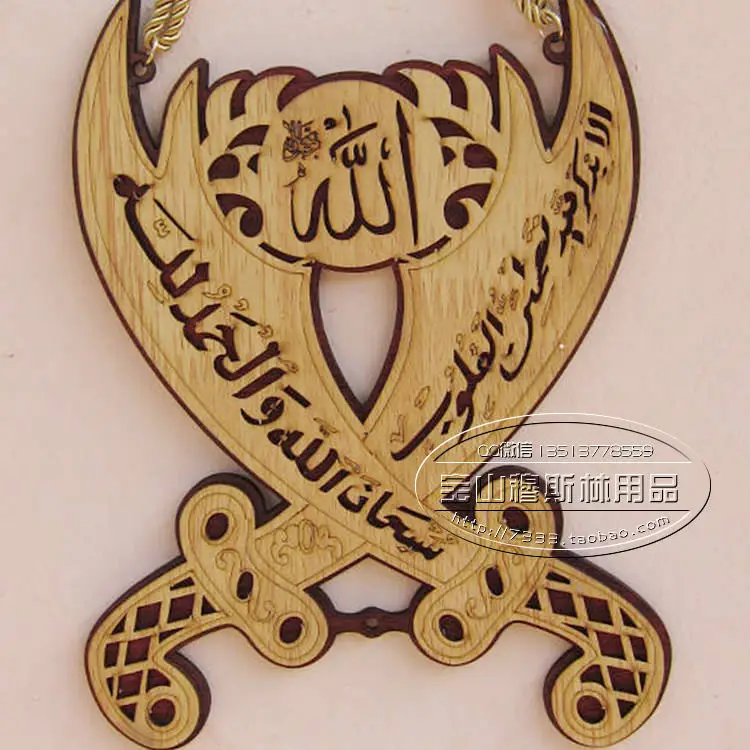 الله
ألا بذكر الله تطمئن القلوب
سبحان الله والحمد لله
QQ微信 13513778559
宝山穆斯林用品
http://7333.taobao.com